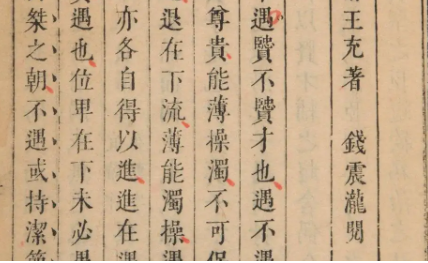 王充著　錢震瀧閱
遇賢不賢才也遇不遇
尊貴能薄操濁不可保
退在下流薄能濁操遇
亦各自得以進進在遇
遇也位卑在下未必愚
桀之朝不遇或持潔節